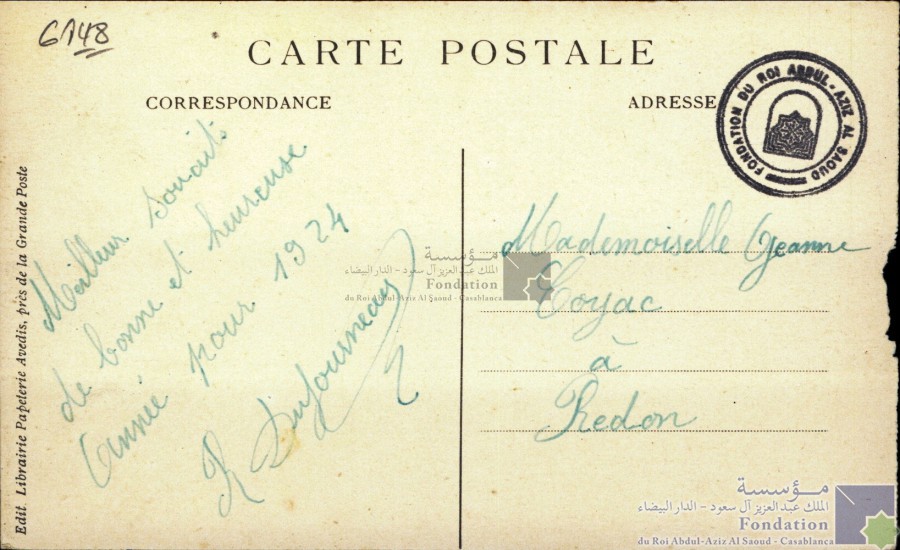 6148
CARTE POSTALE
CORRESPONDANCE
ADRESSE
FONDATION DU ROI ABDUL-AZIZ AL SAOUD
Meilleur souait
de bonne et heureuse
année pour 1924
R Dufourneaux
Mademoiselle Jeanne
Coyac
à
Redon
Edit. Librairie Papeterie Avedis, près de la Grande Poste
مؤسسة
الملك عبد العزيز آل سعود - الدار البيضاء
Fondation
du Roi Abdul-Aziz Al Saoud - Casablanca
مؤسسة
الملك عبد العزيز آل سعود - الدار البيضاء
Fondation
du Roi Abdul-Aziz Al Saoud - Casablanca